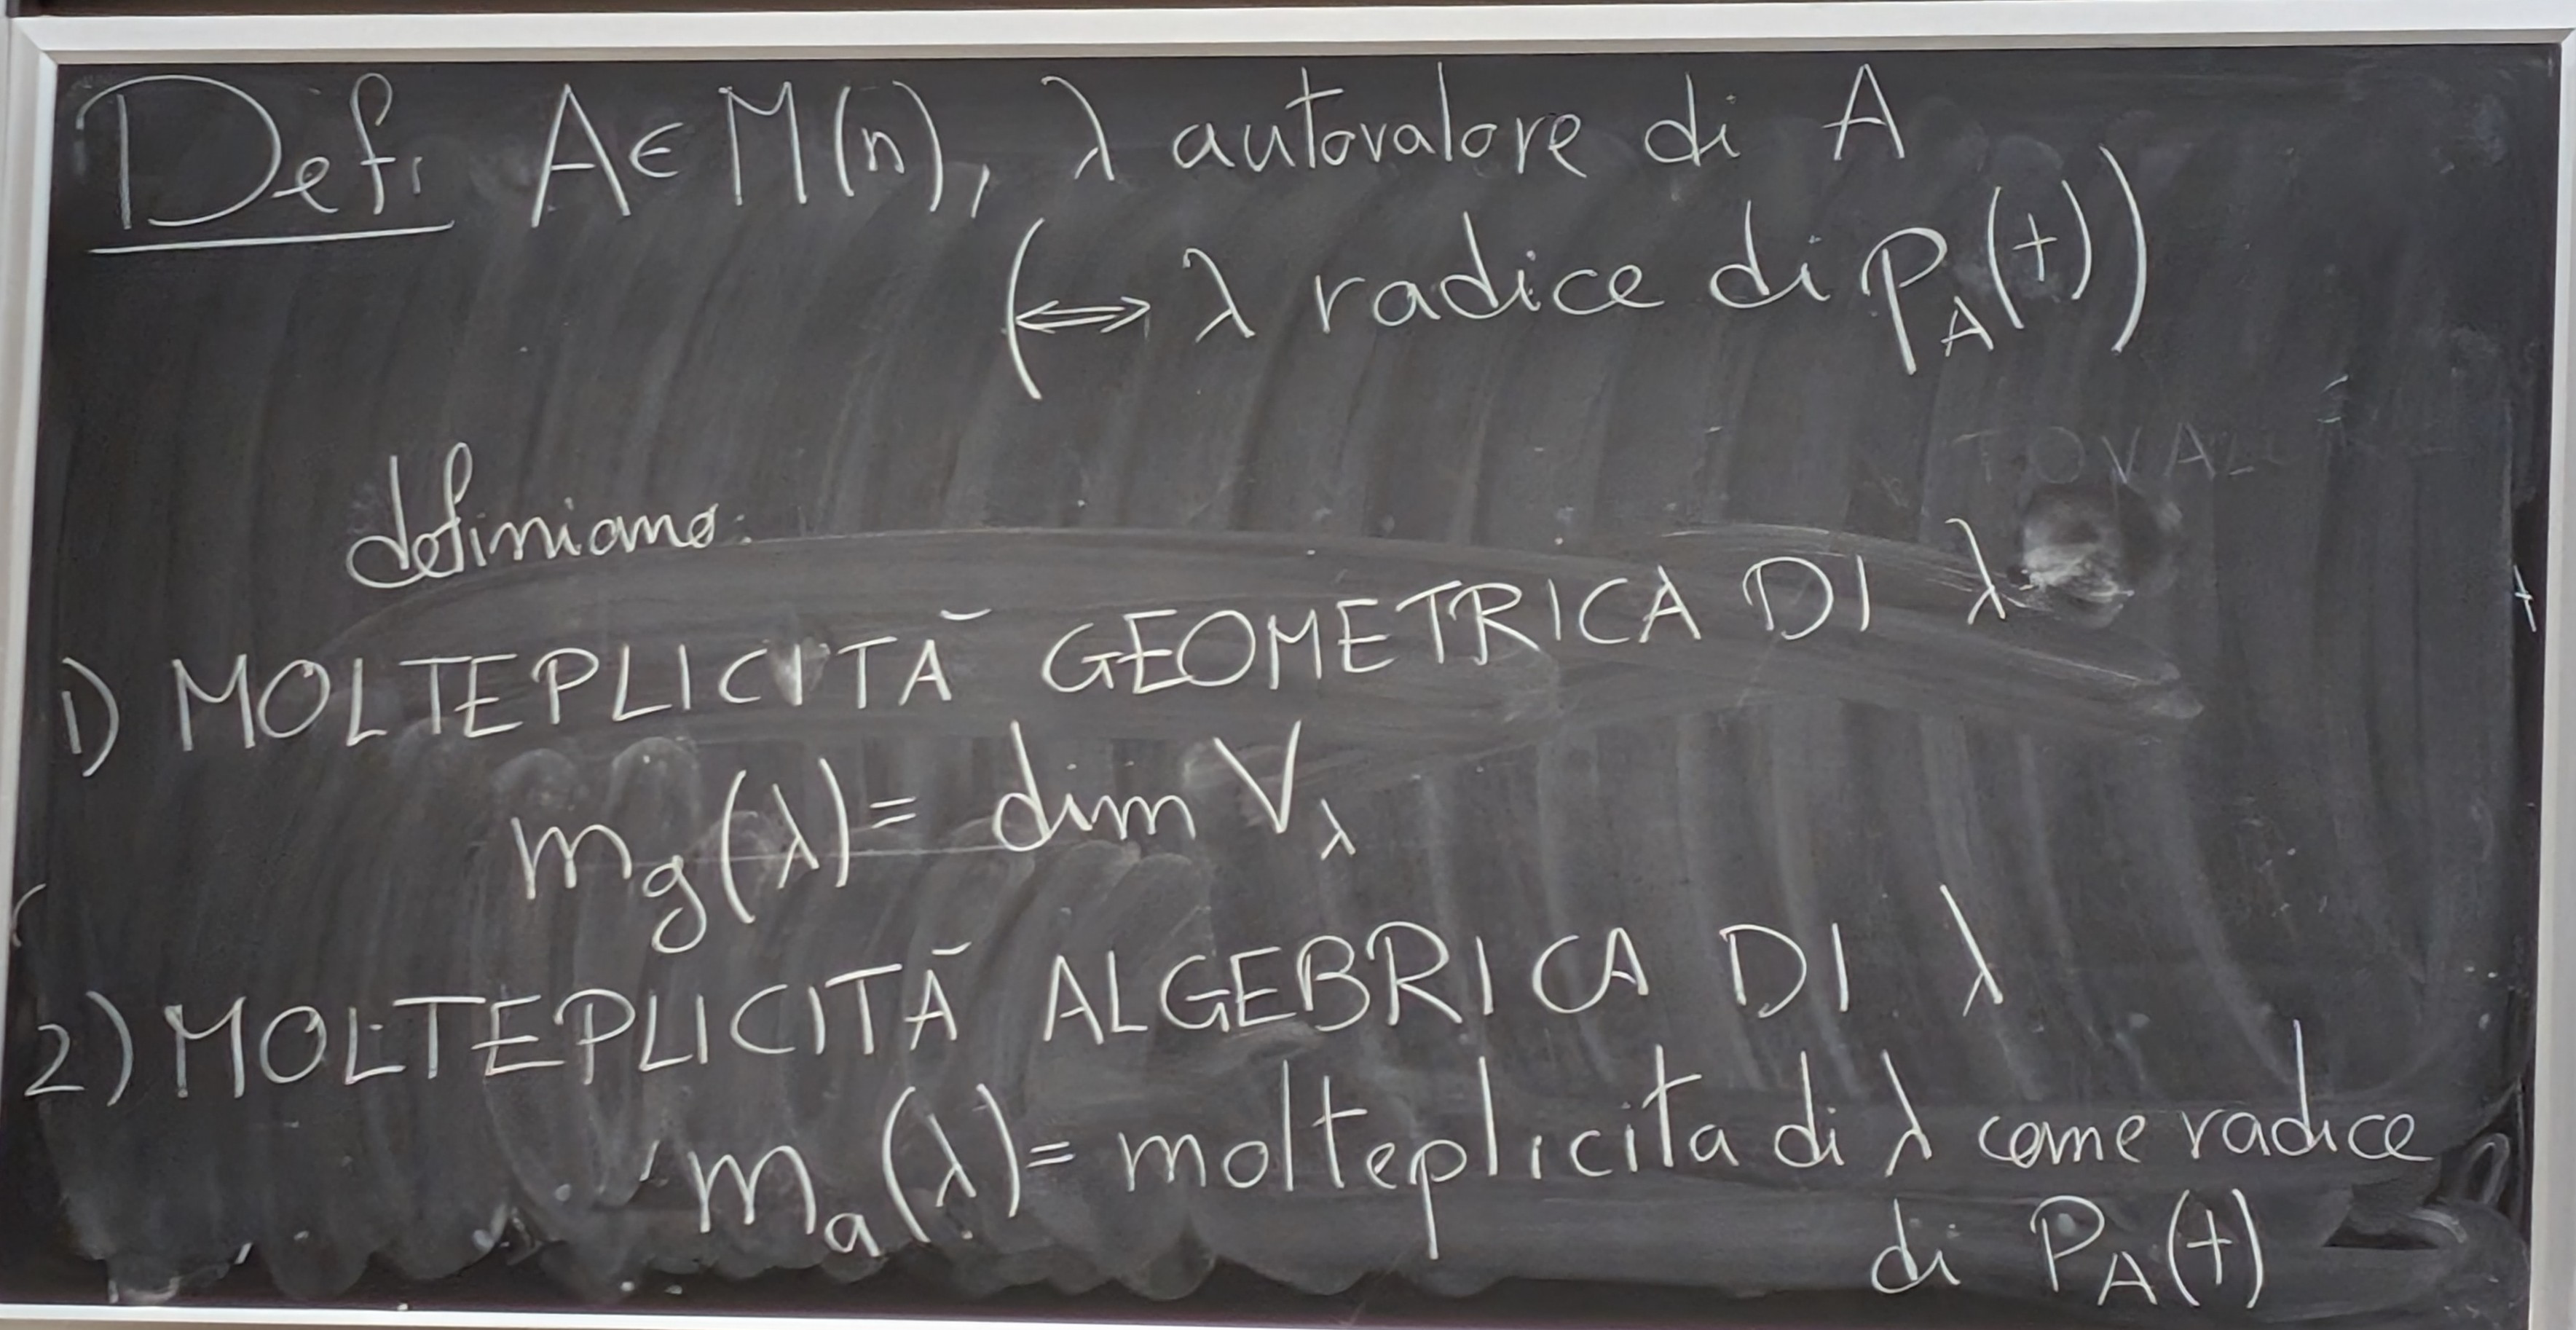 Def. A ∈ M(n), λ autovalore di A
(⟺ λ radice di p_A(t))
TOVAL
definiamo:
1) MOLTEPLICITÀ GEOMETRICA DI λ
m_g(λ) = dim V_λ
2) MOLTEPLICITÀ ALGEBRICA DI λ
m_a(λ) = molteplicita di λ come radice
di P_A(t)